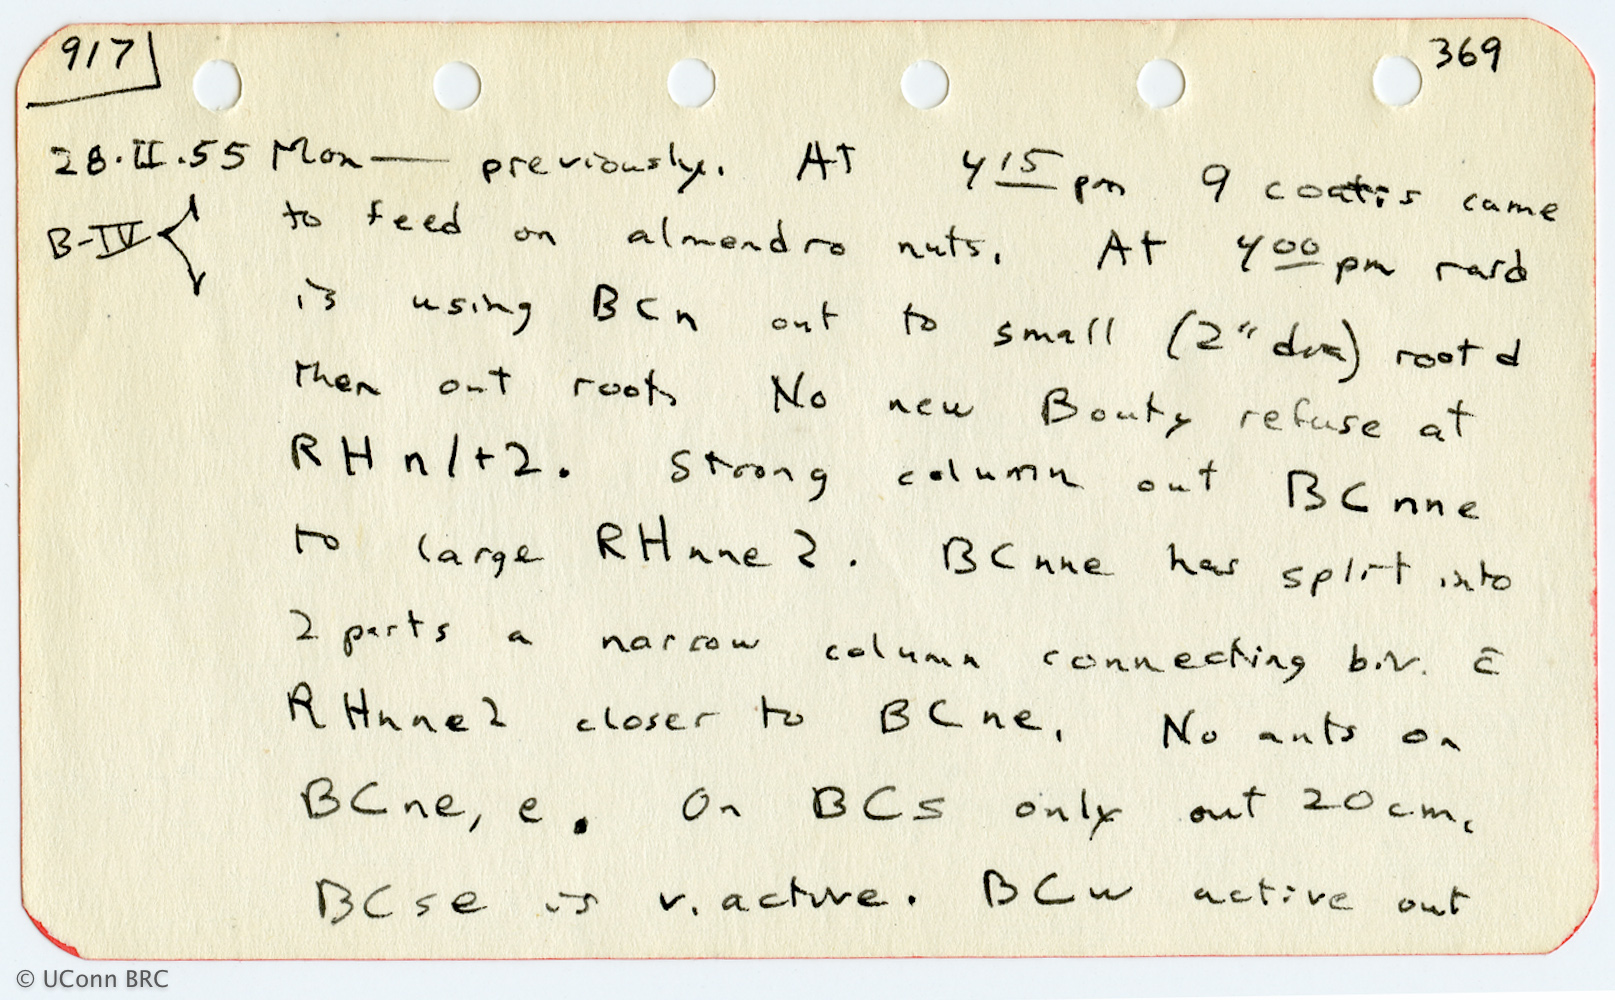 917 369
28·II·55 Mon — previously. At 4 15 pm 9 coatis came
B-IV to feed on almendro nuts. At 4 00 pm raid
is using BCn out to small (2" dia) root &
then out root. No new Bouty refuse at
RHn1+2. Strong column out BCnne
to large RHnne2. BCnne has split into
2 parts a narrow column connecting biv. c̄
RHnne2 closer to BCne. No ants on
BCne, e. On BCs only out 20 cm.
BCse is v. active. BCw active out
© UConn BRC